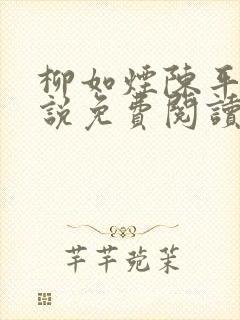 柳如煙陳平
說免費閱讀
芊芊菀茉